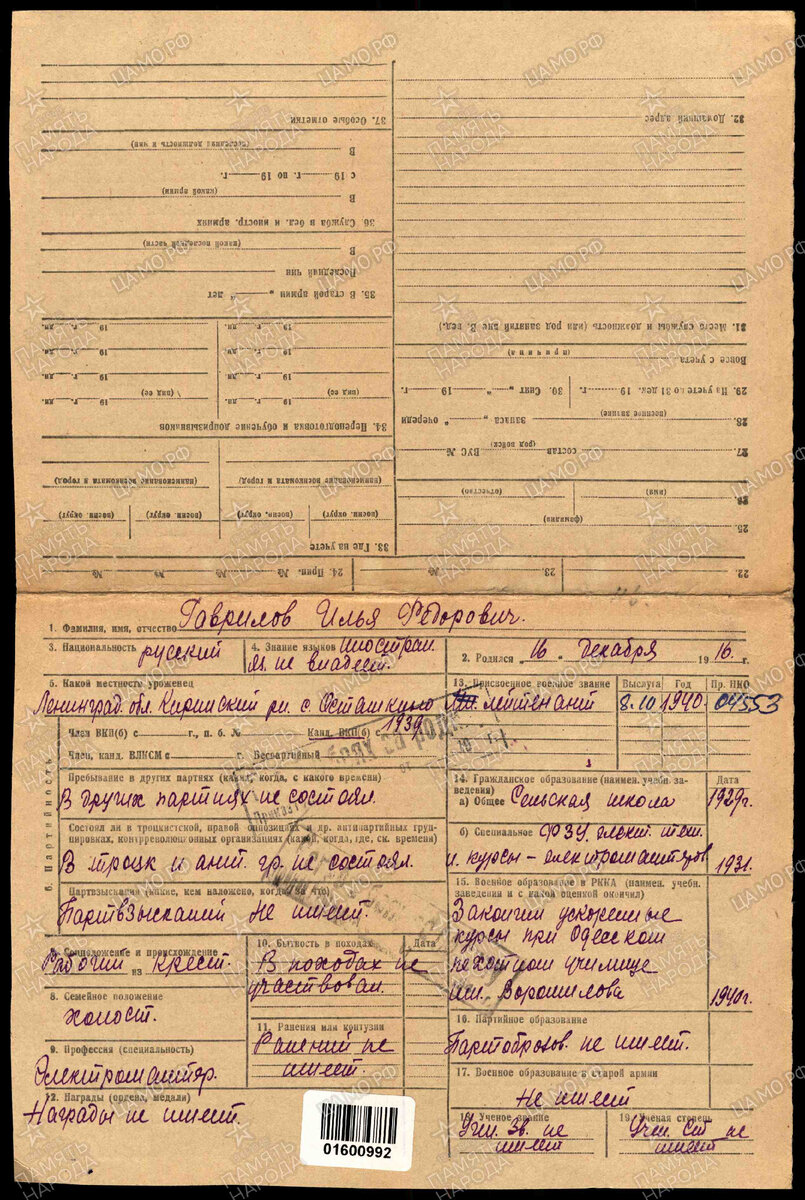 37. Особые отметки
(последняя должность и чин)
В
с 19 г. по 19 г.
(какой армии)
В
36 Служба в бел. и иностр. армиях
(какой последней части)
В
Последний чин
35. В старой армии „ “ лет
19 г. дн. 19 г. дн.
19 г. дн. 19 г. дн.
19 г. дн. 19 г. дн.
19 г. дн. 19 г. дн.
(вид ее) (вид ее)
34. Переподготовка и обучение допризывников
(наименование военкомата и город) (наименование военкомата и город)
(воен. округ) (воен. округ) (воен. округ) (воен. округ)
33. Где на учете
32. Домашний адрес
31. Место службы и должность (или род занятий вне В. вед.)
(причина)
Вовсе с учета
29. На учете к 31 дек. 19 г. 30. Снят „ “ 19 г.
(военное звание)
28. запаса „ “ очереди
(род войск)
27. состав ВУС №
(имя) (отчество)
26
(фамилия)
25.
22 23. 24. Прип. № № № №
1. Фамилия, имя, отчество Гаврилов Илья Федорович.
3. Национальность русский
4. Знание языков иностран яз. не владеет.
2. Родился „16“ декабря 1916 г.
5. Какой местности уроженец
Ленинград. обл. Киришский рн. с. Осташкино
13. Присвоенное военное звание Выслуга Год Пр. НКО
лейтенант 8.10 1940. 04553
6. Партийность
Член ВКП(б) с г., п. б. № Канд. ВКП(б) 1939
Член, канд. ВЛКСМ с г. Беспартийный
Пребывание в других партиях (каких, когда, с какого времени)
В других партиях не состоял.
Состоял ли в троцкистской, правой оппозициях и др. антипартийных группировках, контрреволюционных организациях (какой, когда, где, см. времени)
В троцк и ант. гр. не состоял.
Партвзыскания (какие, кем наложено, когда, за что)
Партвзысканий не имеет.
14. Гражданское образование (наимен. учебн. заведения) Дата
а) Общее Сельская школа 1929г.
б) Специальное ФЗУ электр. тех.
и курсы - электромонтеров 1931.
15. Военное образование в РККА (наимен. учебн. заведения и с какой оценкой окончил)
Закончил ускоренные
курсы при Одесском
пехотном училище
им. Ворошилова 1940г.
7. Соцположение и происхождение
Рабочий из крест.
8. Семейное положение
холост.
9. Профессия (специальность)
Электромонтер.
10. Бытность в походах Дата
В походах не
участвовал.
11. Ранения или контузии
Ранений не
имеет
12. Награды (ордена, медали)
Награды не имеет.
16. Партийное образование
Партобразов. не имеет.
17. Военное образование в старой армии
Не имеет
18. Ученое звание
Учен. зв. не
имеет
19. Ученая степень
Учен. ст. не
имеет
01600992
ПАМЯТЬ НАРОДА
ЦАМО.РФ